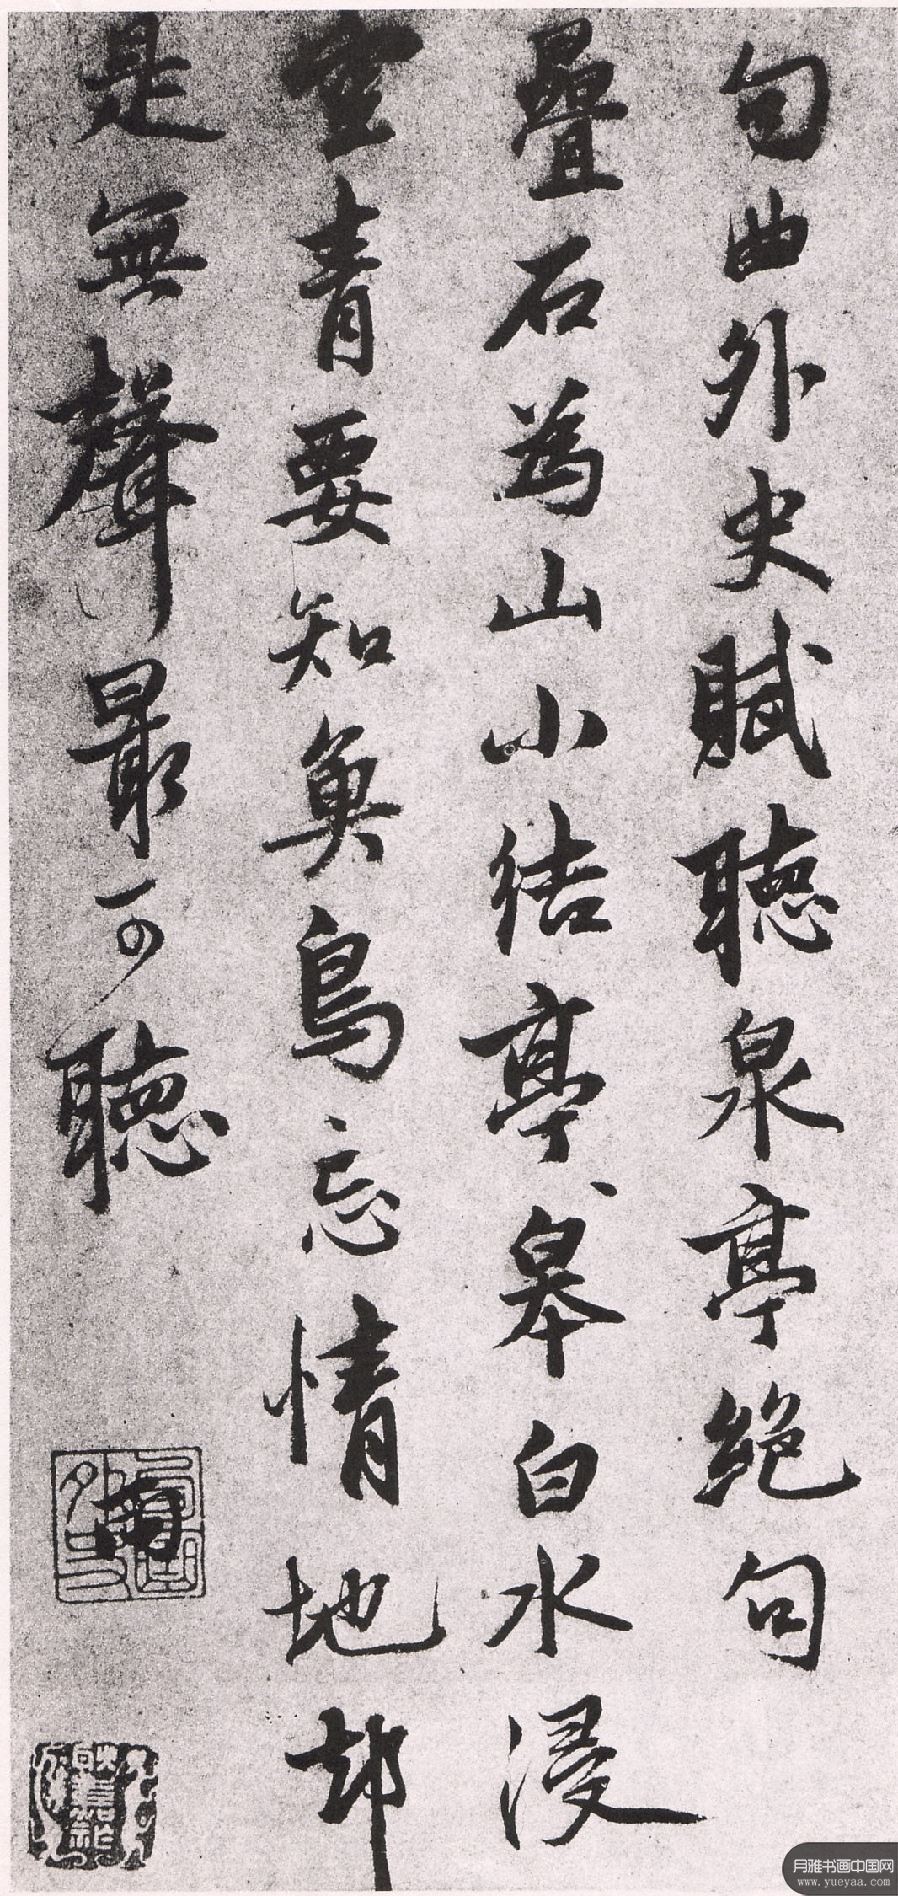 句曲外史賦聽泉亭絕句
疊石為山小結亭亭皋白水浸
空青要知魚鳥忘情地却
是無聲最可聽
雨
句曲外史
月雅书画中国网
www.yueyaa.com